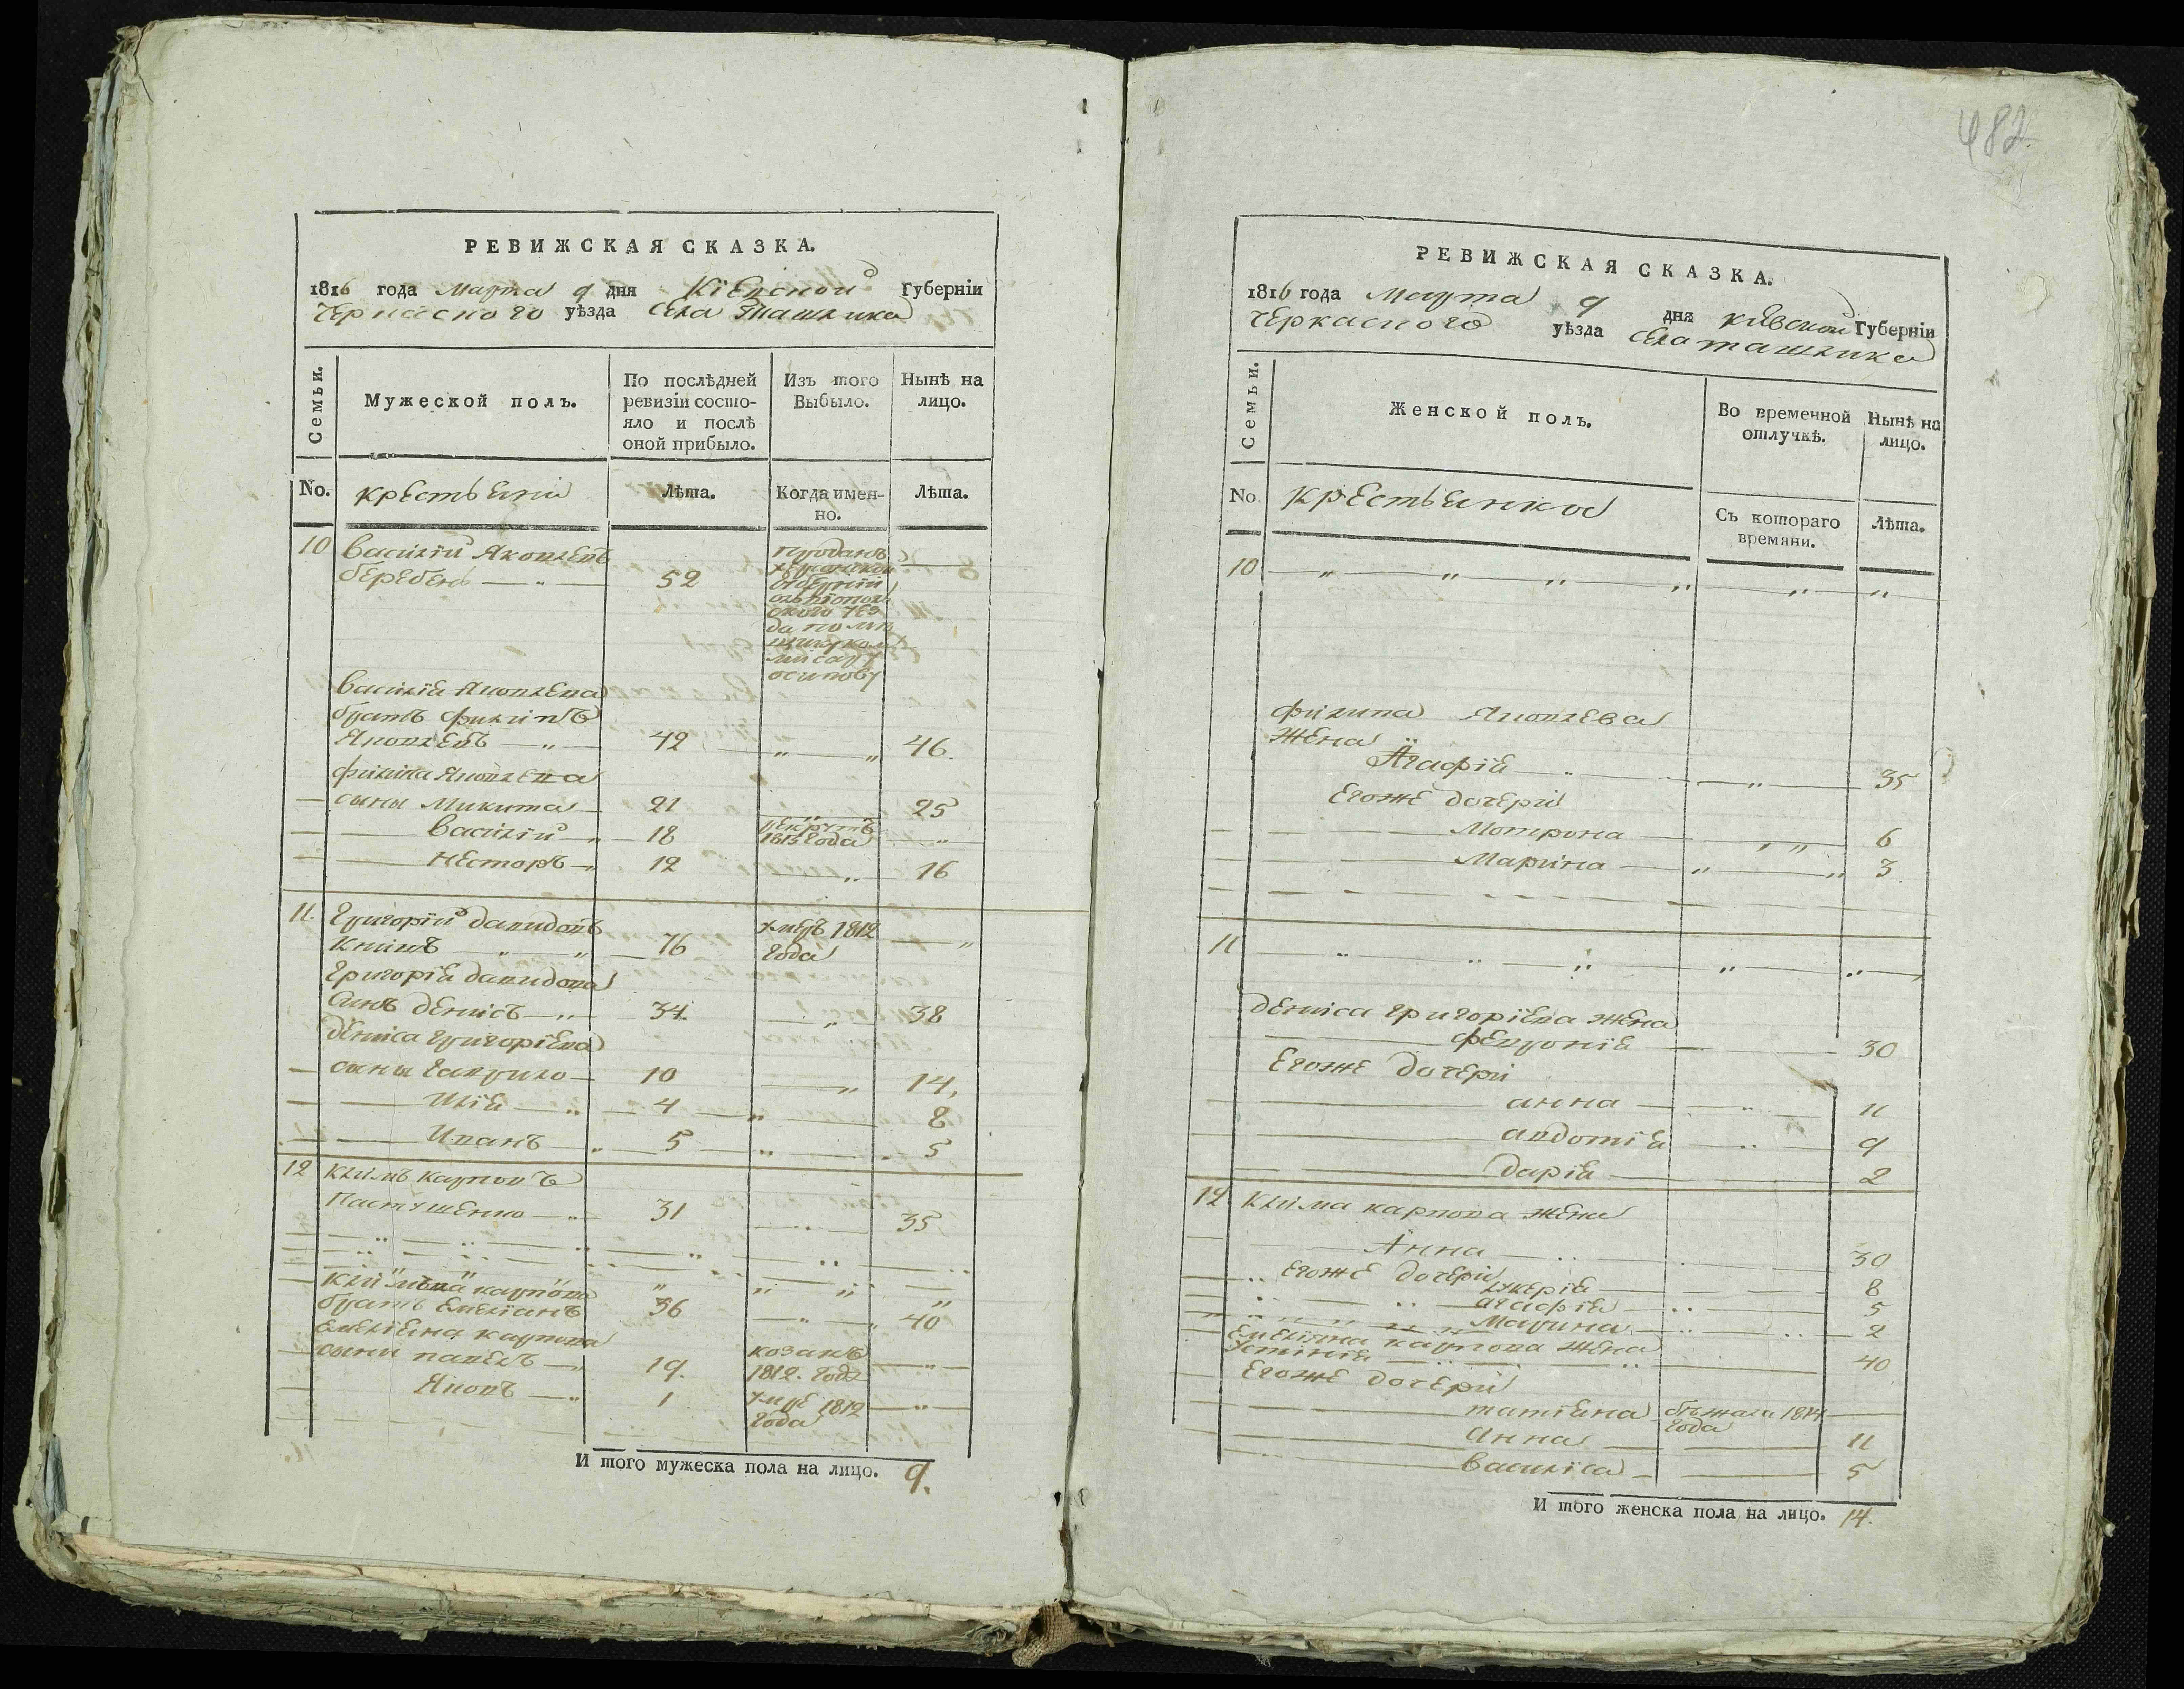 РЕВИЖСКАЯ СКАЗКА.
1816 года марта 9 дня Кіевской Губерніи
Черкаского уѣзда Села Ташлика
Семьи.
Мужеской полъ.
По послѣдней ревизіи состо-
яло и послѣ
оной прибыло.
Изъ того
Выбыло.
Нынѣ на
лицо.
No.
крестьяни
Лѣта.
Когда имен-
но.
Лѣта.
10 Василій Яковлевъ
беребенъ — 52
проданъ
херсонской
губерніи
ольвіополь
ского уез
да поме
щику ком
мисару
осипову
Василія Яковлева
братъ филипъ
Яковлевъ — 42 — 46.
филипа Яковлева
сыны Микита 21 25
Василій 18 рекрутъ
1813 года
Несторъ 12 16
11. Григорій давидовъ
76 умеръ 1812
года
Григорія давидова
Синъ денисъ 34. 38
дениса григоріева
сыны гаврило 10 14,
Илія 4 8
Иванъ 5 5
12 климъ карповъ
Пастушенко 31 35
клима карпова
братъ емеліанъ 36 40
емеліяна карпова
сыни павелъ 19. козакъ
1812. года
Яковъ 1 умре 1812
года
И того мужеска пола на лицо. 9.
482
РЕВИЖСКАЯ СКАЗКА.
1816 года Марта 9 дня кіевской Губерніи
черкаского уѣзда села ташлика
Семьи.
Женской полъ.
Во временной
отлучкѣ.
Нынѣ на
лицо.
No
крестьянки
Съ котораго
времяни.
Лѣта.
10
филипа Яковлева
жена
Агафія 35
Егоже дочери
Мотрона 6
Марина 3.
11
дениса григоріева жена
февронія 30
Егоже дочери
анна 11
авдотія 9
дарія 2
12 клима карпова жена
Анна 30
егоже дочери
лукерія 8
агафія 5
Марина 2
Емеліяна карпова жена
устинія 40
Егоже дочери
татіяна бежала 1814
года
Анна 11
василіса 5
И того женска пола на лицо. 14.